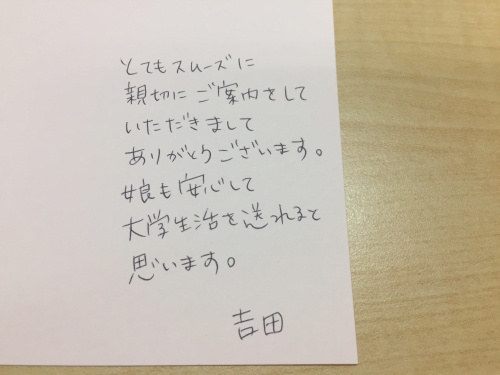 とてもスムーズに
親切にご案内をして
いただきまして
ありがとうございます。
娘も安心して
大学生活を送れると
思います。
吉田